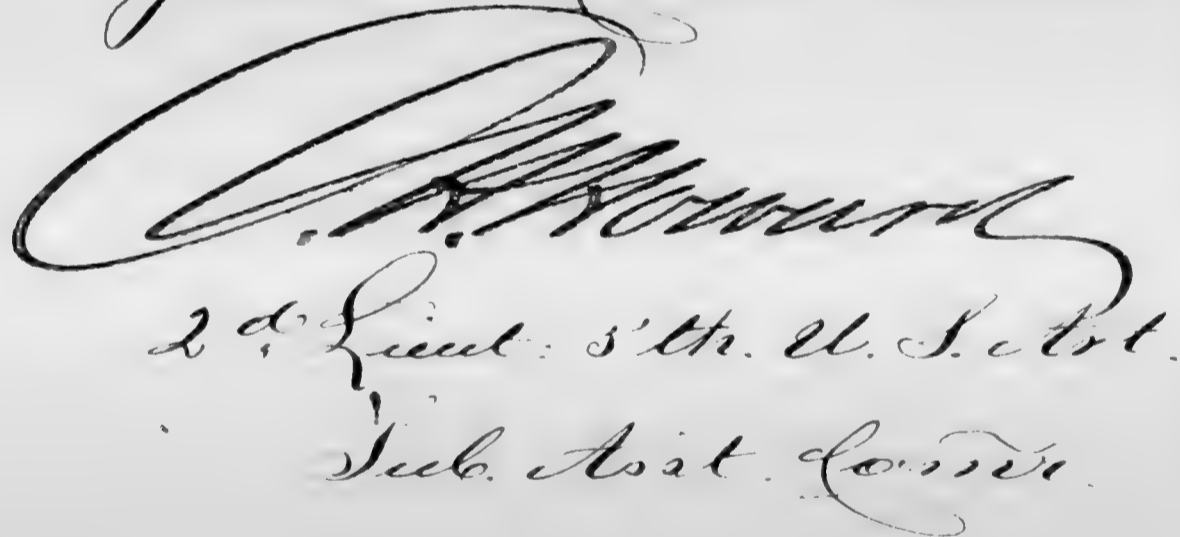 C. H. Howard
2d. Lieut. 5th. U. S. Art.
Sub. Asst. Comr.